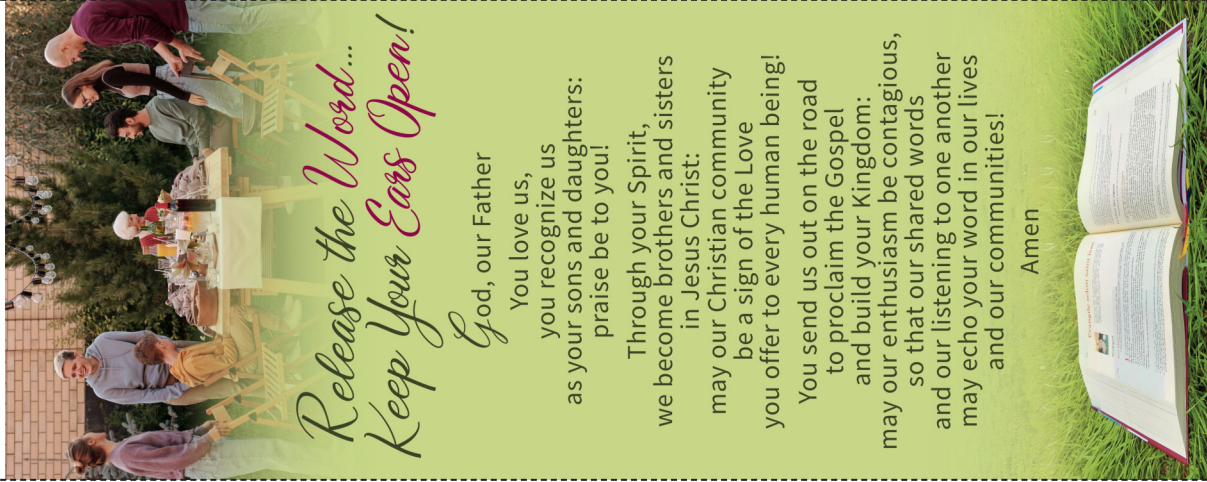 Release the Word...
Keep Your Ears Open!
God, our Father
You love us,
you recognize us
as your sons and daughters:
praise be to you!
Through your Spirit,
we become brothers and sisters
in Jesus Christ:
may our Christian community
be a sign of the Love
you offer to every human being!
You send us out on the road
to proclaim the Gospel
and build your Kingdom:
may our enthusiasm be contagious,
so that our shared words
and our listening to one another
may echo your word in our lives
and our communities!
Amen